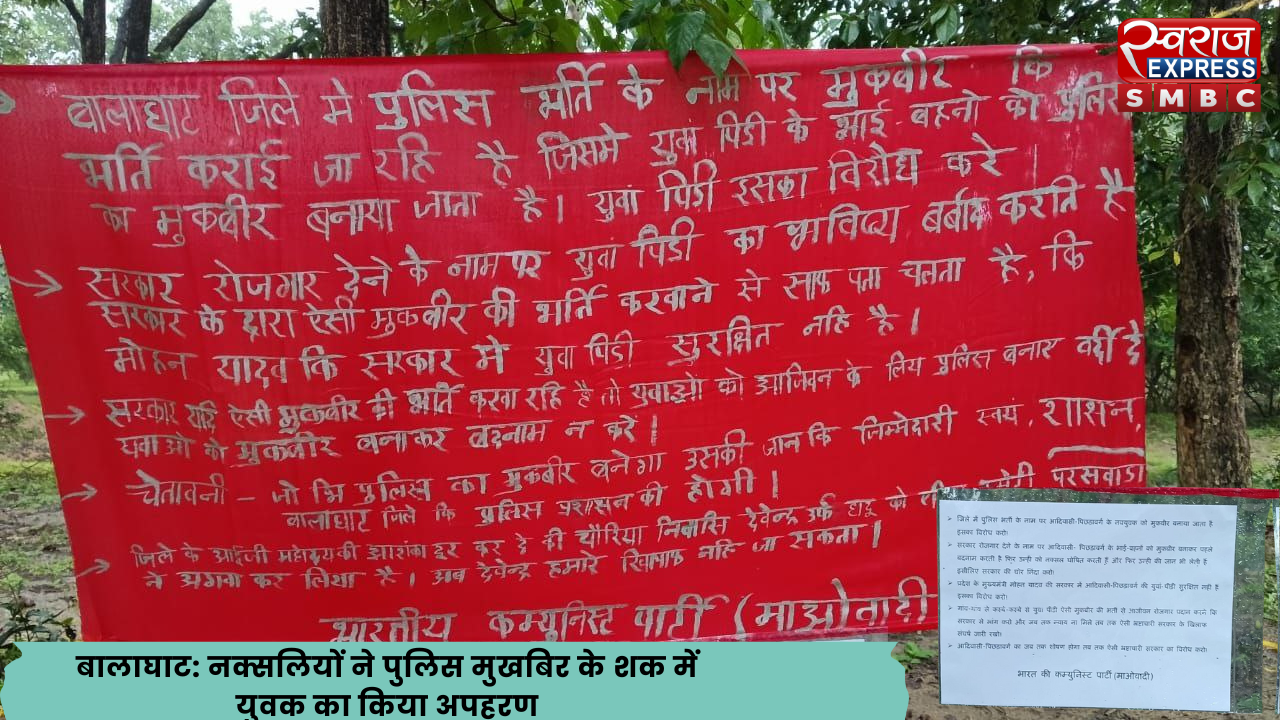 स्वराज
EXPRESS
SMBC
बालाघाट जिले मे पुलिस भर्ति के नाम पर मुकबीर कि
भर्ति कराई जा रहि है जिसमे युवा पिडी के भाई-बहनो को पुलिस
का मुकबीर बनाया जाता है। युवा पिडी इसका विरोध करे
→ सरकार रोजगार देने के नाम पर युवा पिडी का भविष्य बर्बाद कराति है
सरकार के द्वारा ऐसी मुकबीर की भर्ति करवाने से साफ पता चलता है, कि
मोहन यादव कि सरकार मे युवा पिडी सुरक्षित नहि है।
→ सरकार यदि ऐसी मुकबीर की भर्ति करवा रहि है तो युवाओ को आजिवन के लिय पुलिस बनाए वर्दी दे
युवाओ को मुकबीर बनाकर बदनाम न करे।
→ चेतावनी - जो भि पुलिस का मुकबीर बनेगा उसकी जान कि जिम्मेदारी स्वयं, शाशन,
बालाघाट जिले कि पुलिस प्रशासन की होगी।
→ जिले के आईजी महोदय की आशंका दूर कर दे की चौरिया निवासि देवेन्द्र उर्फ को परसवाडा
ने अगवा कर लिया है। अब देवेन्द्र हमारे खिलाफ नहि जा सकता।
भारतीय कम्युनिस्ट पार्टी (माओवादी
➢ जिले में पुलिस भर्ती के नाम पर आदिवासी-पिछड़ावर्ग के नवयुवक को मुकबीर बनाया जाता है
इसका विरोध करो।
➢ सरकार रोजगार देने के नाम पर आदिवासी- पिछड़ावर्ग के भाई-बहनो को मुकबीर बनाकर पहले
बदनाम करती है फिर उन्ही को नक्सल घोषित करती हैं और फिर उन्ही की जान भी लेती है
इसीलिए सरकार की घोर निंदा करो।
➢ प्रदेश के मुख्यमंत्री मोहन यादव की सरकार में आदिवासी-पिछड़ावर्ग की युवा पीढ़ी सुरक्षित नहीं है
इसका विरोध करो।
➢ गांव-गांव से कस्बे-कस्बे से युवा पीढ़ी ऐसी मुकबीर की भर्ती से आजीवन रोजगार प्रदान करने कि
सरकार से मांग करो और जब तक न्याय ना मिले तब तक ऐसी भ्रष्टाचारी सरकार के खिलाफ
संघर्ष जारी रखो।
➢ आदिवासी-पिछड़ावर्ग का जब तक शोषण होगा तब तक ऐसी भ्रष्टाचारी सरकार का विरोध करो।
भारत की कम्युनिस्ट पार्टी (माओवादी)
बालाघाट: नक्सलियों ने पुलिस मुखबिर के शक में
युवक का किया अपहरण